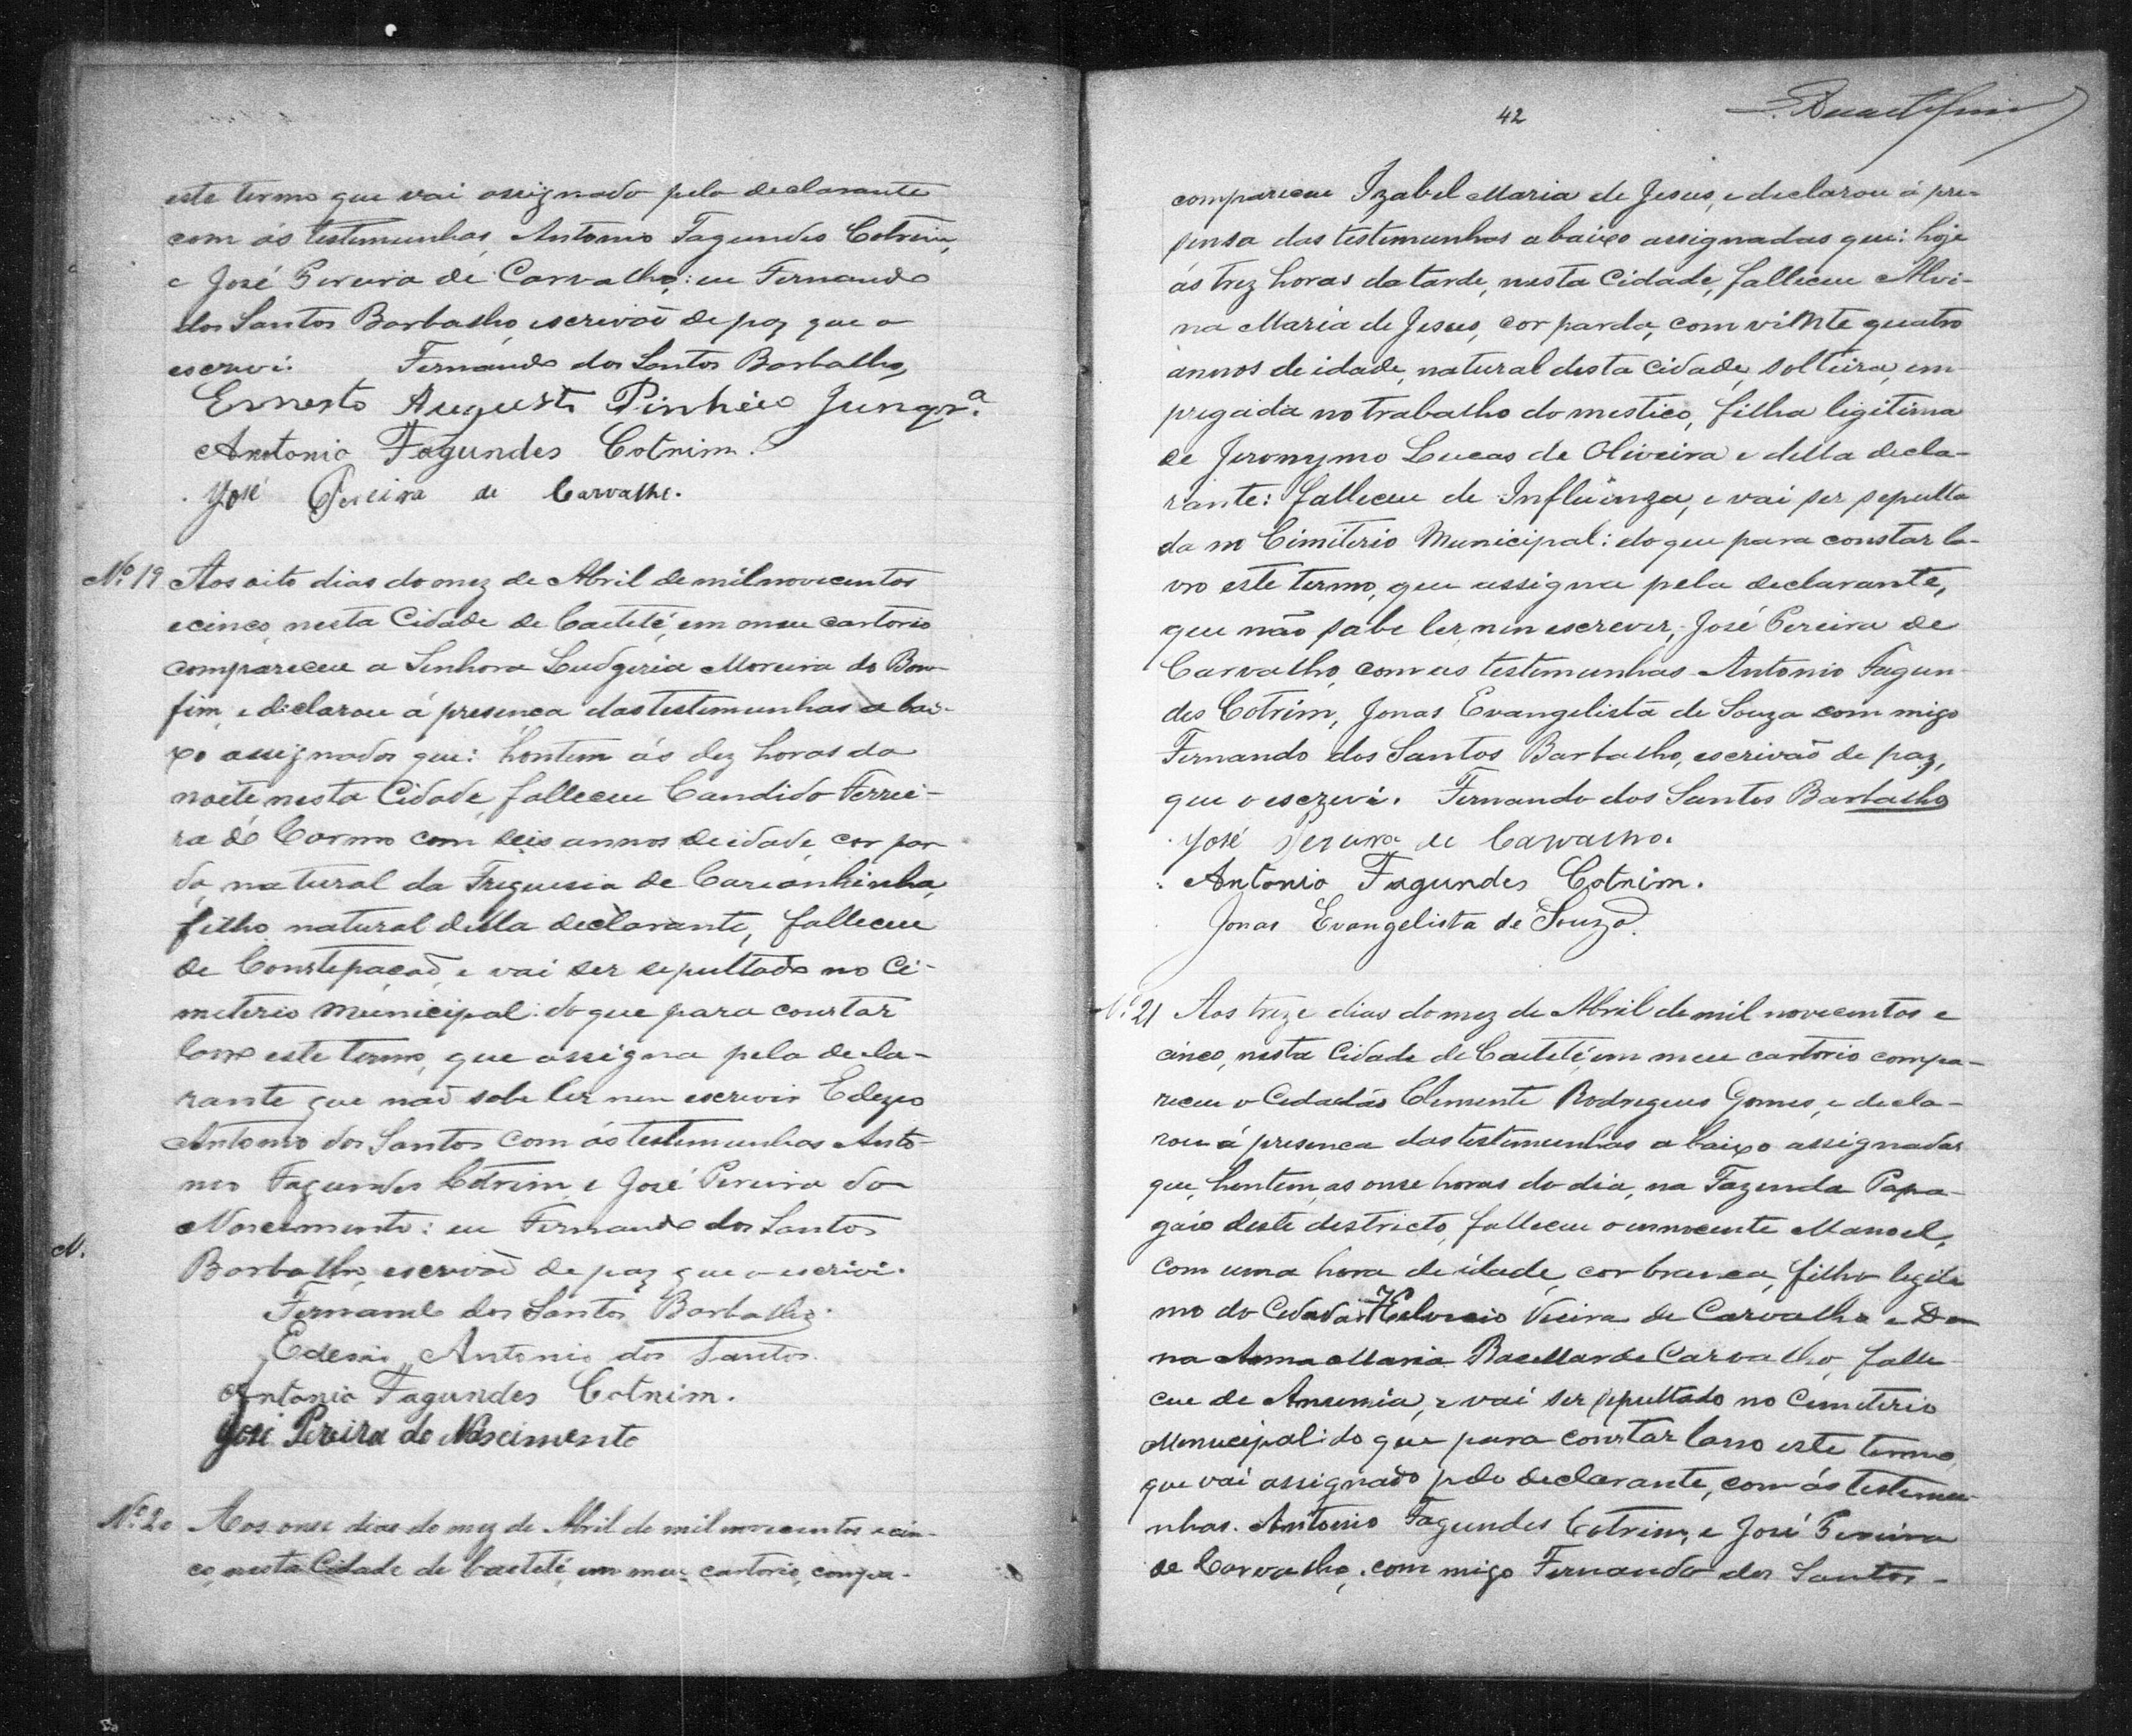 este termo que vai assignado pelo declarante
com ás testemunhas, Antonio Fagundes Cotrim,
e José Pereira de Carvalho: eu Fernando
dos Santos Barbalho, escrivaõ de paz que o
escrevi. Fernando dos Santos Barbalho,
Ernesto Augusto Pinheiro Junqrª.
Antonio Fagundes Cotrim.
José Pereira de Carvalho.
Nº 19 Aos oito dias do mez de Abril de mil novecentos
e cinco, nesta Cidade de Caetité, em meu cartorio
compareceu a Senhora Ludgeria Moreira do Bom-
fim, e declarou á presença das testemunhas a bai-
xo assignados que: hontem ás dez horas da
noite nesta Cidade, falleceu Candido Ferrei-
ra do Carmo com seis annos de idade, cor par
da, natural da Freguesia de Carianhinha,
filho natural della declarante, falleceu
de Constepaçaõ, e vai ser sepultado no Ce-
miterio Municipal: do que para constar
lavro este termo, que assigna pela decla-
rante que naõ sabe ler nem escrever Edezio
Antonio dos Santos com ás testemunhas Anto-
nio Fagundes Cotrim, e José Pereira do
Nascimento: eu Fernando dos Santos
Barbalho, escrivaõ de paz que o escrevi.
Fernando dos Santos Barbalho.
Edesio Antonio dos Santos.
Antonio Fagundes Cotrim.
José Pereira do Nascimento
N.
Nº 20 Aos onze dias do mez de Abril de mil novecentos e cin-
co, nesta Cidade de Caetité, em meu cartorio, compa-
42
compareceu Izabel Maria de Jesus, e declarou á pre-
sensa das testemunhas abaixo assignadas que: hoje
ás trez horas da tarde, nesta Cidade, falleceu Alvi-
na Maria de Jesus, cor parda, com vinte quatro
annos de idade, natural desta Cidade, solteira, em-
pregada no trabalho domestico, filha ligitima
de Jeronymo Lucas de Oliveira e della decla-
rante: falleceu de Influenza, e vai ser sepulta
da no Cimiterio Municipal: do que para constar la-
vro este termo, que assigna pela declarante,
que não sabe ler, nem escrever, José Pereira de
Carvalho, com as testemunhas Antonio Fagun-
des Cotrim, Jonas Evangelista de Souza com migo
Fernando dos Santos Barbalho, escrivaõ de paz,
que o escrevi. Fernando dos Santos Barbalho
José Pereira de Carvalho.
Antonio Fagundes Cotrim.
Jonas Evangelista de Souza.
Nº 21 Aos treze dias do mez de Abril de mil novecentos e
cinco, nesta Cidade de Caetité, em meu cartorio compa-
receu o Cidadão Clemente Rodrigues Gomes, e decla-
rou á presença das testemunhas a baixo assignadas
que, hontem, as onse horas do dia, na Fazenda Papa-
gaio deste districto, falleceu o innocente Manoel,
com uma hora de idade, cor branca, filho legiti
mo do Cidadaõ Helvecio Vieira de Carvalho e Do
na Anna Maria Bacellar de Carvalho, falle-
ceu de Anemia, e vai ser sepultado no Cemeterio
Municipal: do que para constar lavro este termo
que vai assignado pelo declarante, com ás testemu-
nhas. Antonio Fagundes Cotrim, e José Pereira
de Carvalho, com migo Fernando dos Santos-